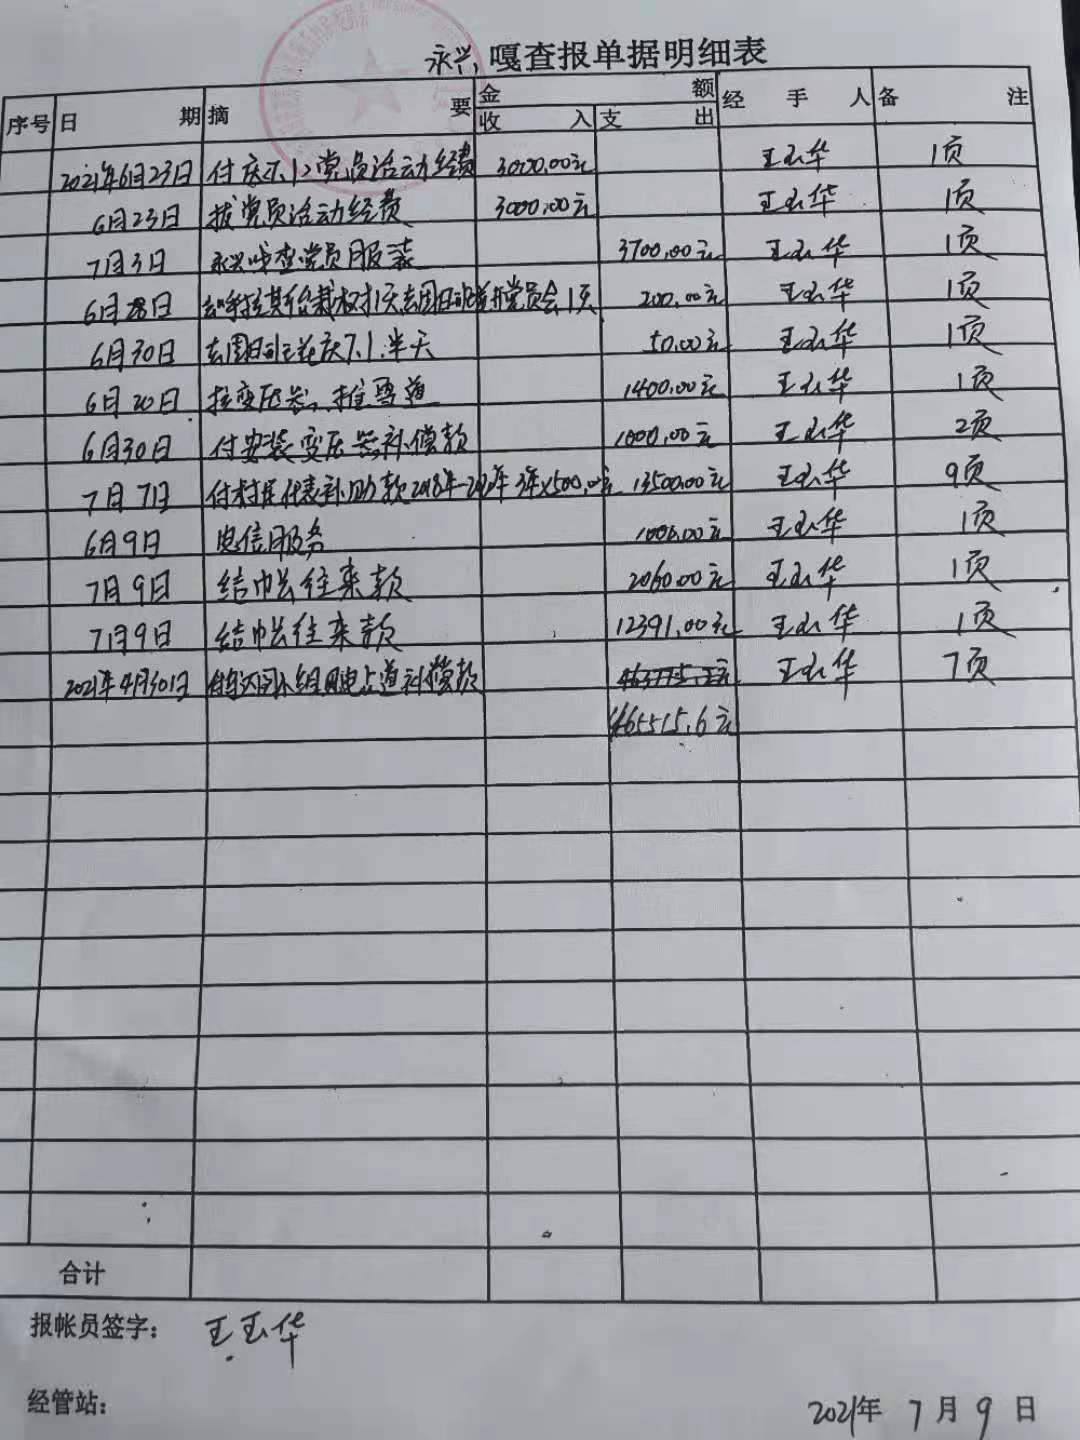 永兴嘎查报单据明细表
序号 日期 摘要 金额 收入 支出 经手人 备注
2021年6月23日 付庆七.1党员活动经费 3000.00元 王玉华 1页
6月23日 拔党员活动经费 3000.00元 王玉华 1页
7月3日 永兴嘎查党员服装 3700.00元 王玉华 1页
6月28日 1天去 党员会1天 200.00元 王玉华 1页
6月30日 庆7.1.半天 50.00元 王玉华 1页
6月20日 拉变压器、推雪道 1400.00元 王玉华 1页
6月30日 付安装变压器补偿款 1000.00元 王玉华 2页
7月7日 付村民代表补助款2018年-2020年3年×500.00元 13500.00元 王玉华 9页
6月9日 电信服务 1000.00元 王玉华 1页
7月9日 结帐往来款 2060.00元 王玉华 1页
7月9日 结帐往来款 12391.00元 王玉华 1页
2021年4月30日 小组 占道补偿款 王玉华 7页
465515.6元
合计
报帐员签字: 王玉华
经管站:
2021年7月9日